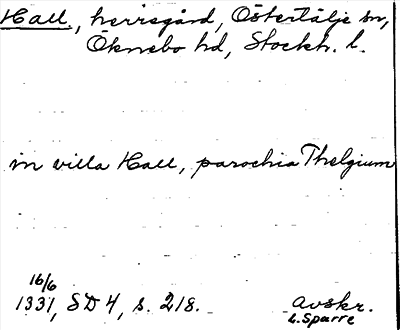 Hall, herrgård, Östertälje sn,
Öknebo hd, Stockh. l.
in villa Hall, parochia Thelgium
16/6
1331, SD 4, s. 218.
avskr.
L. Sparre